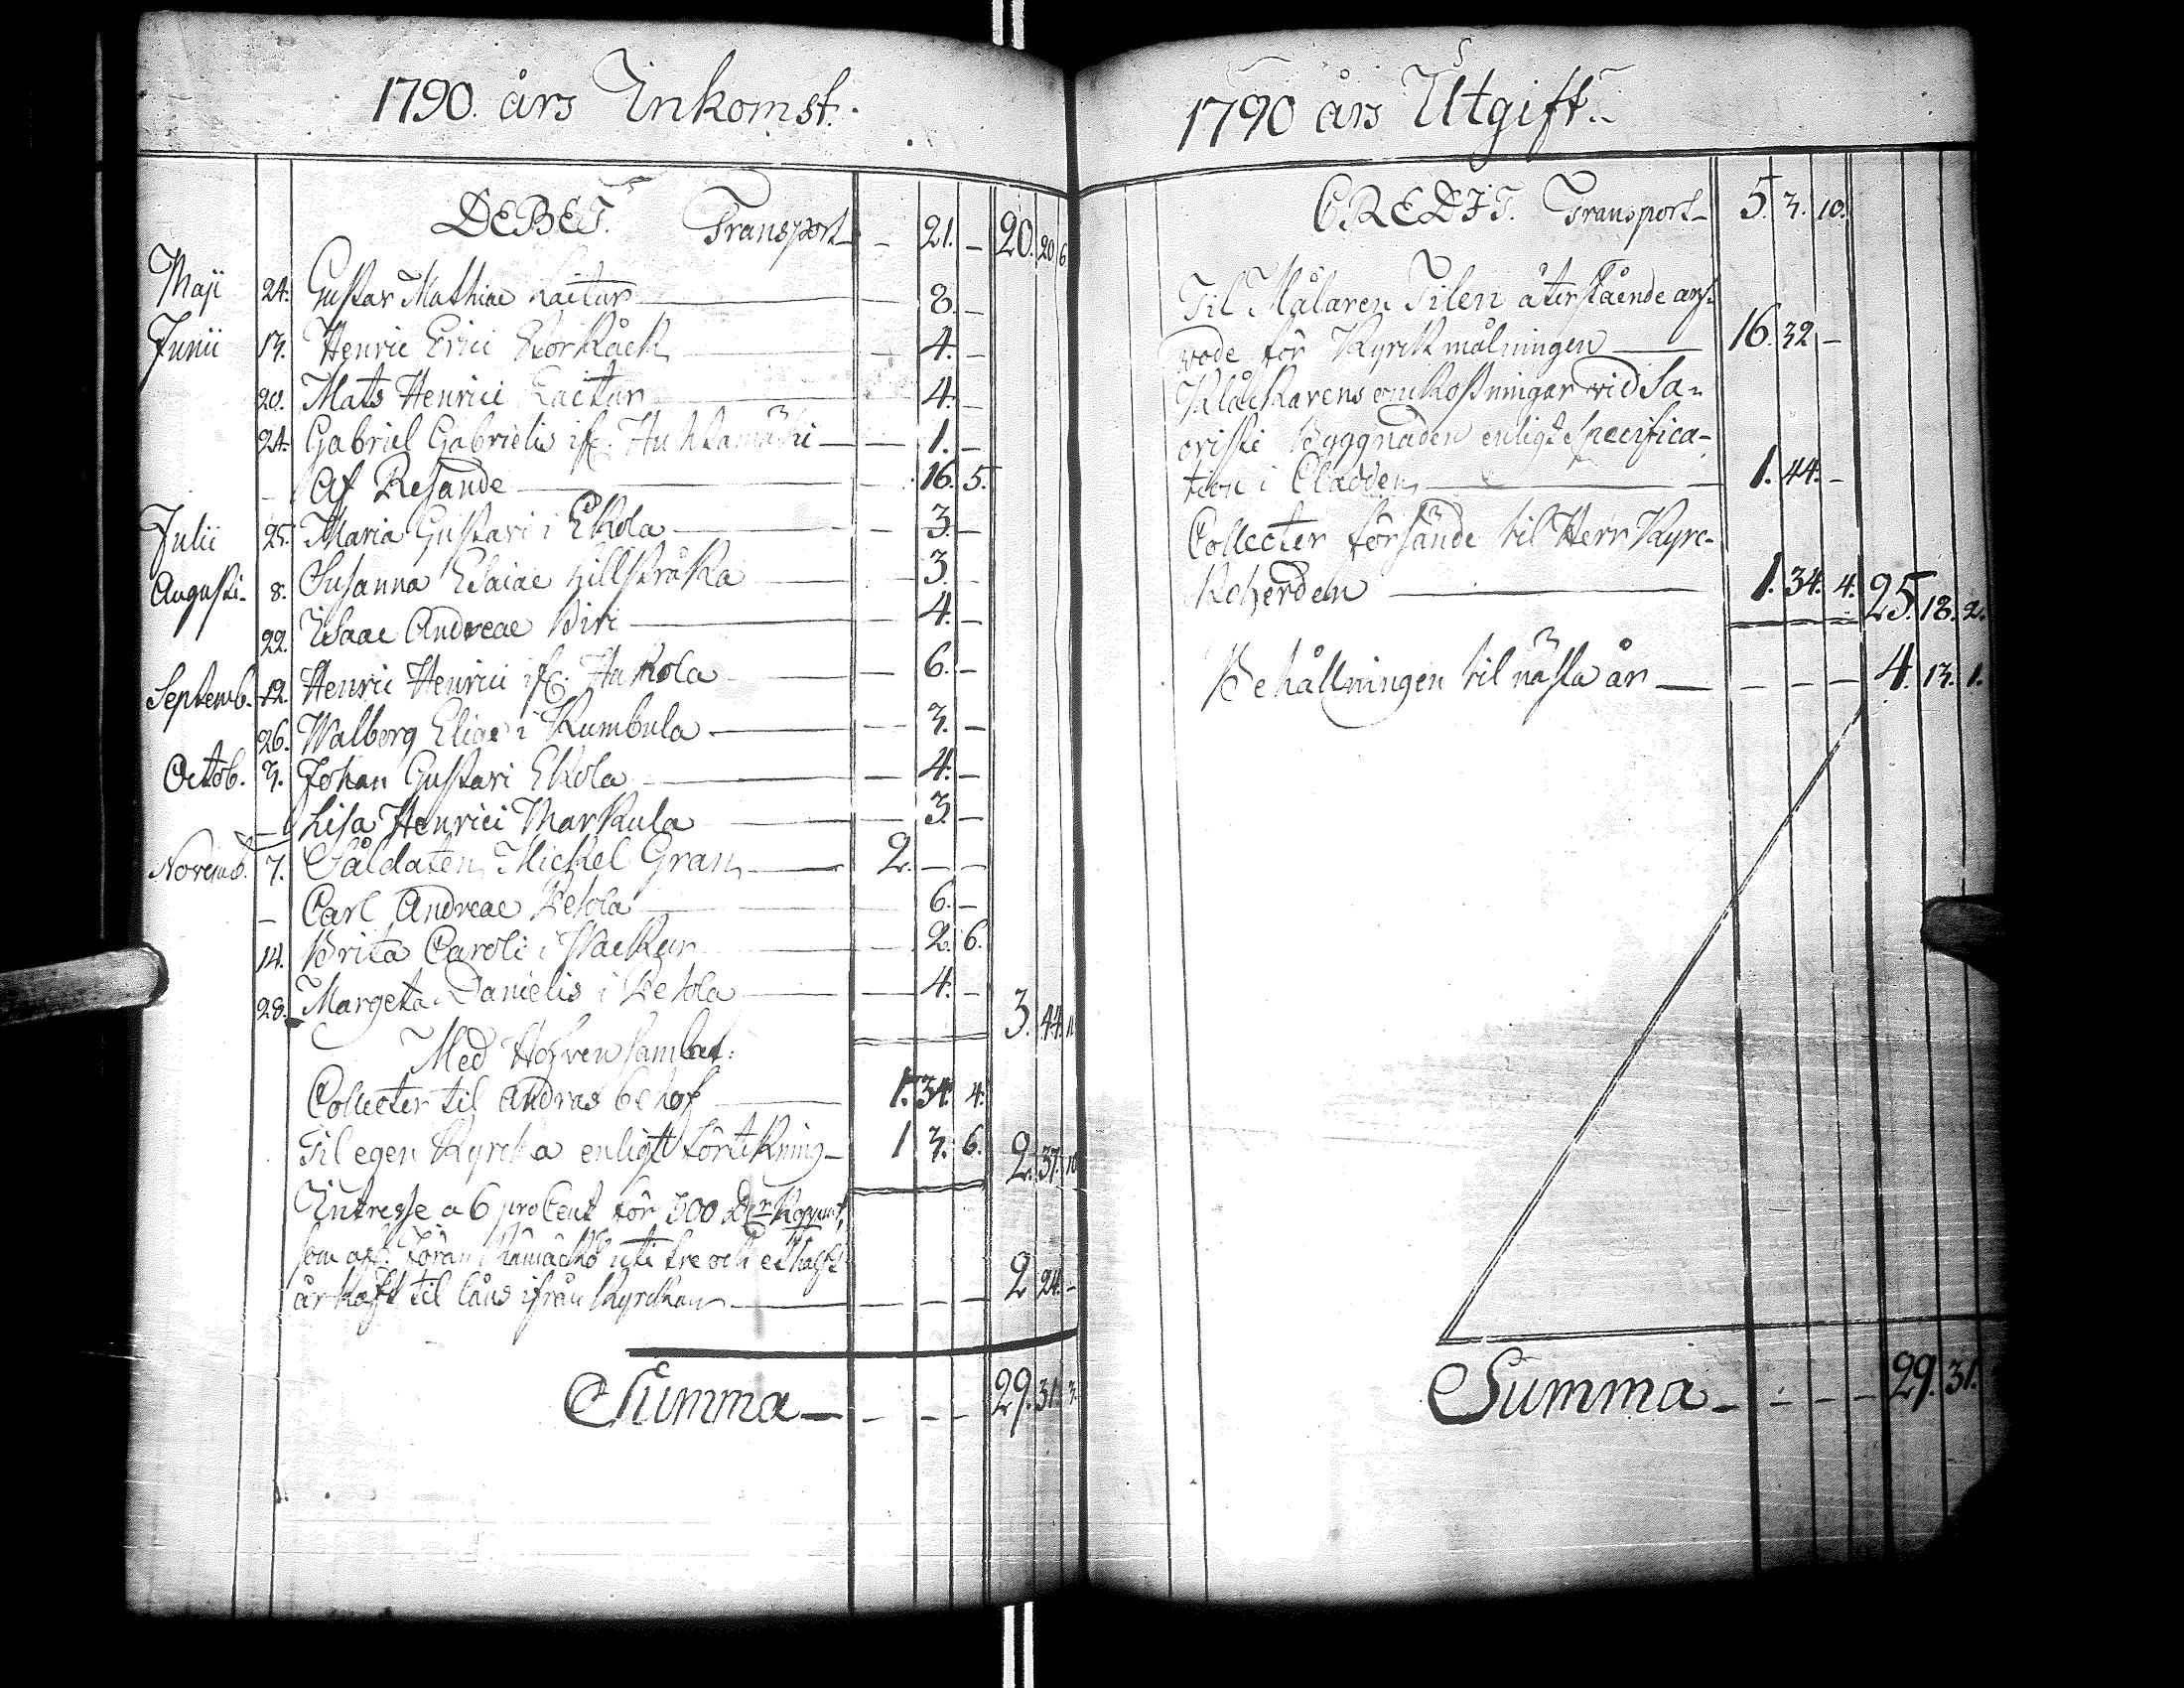 1790. års Inkomst.
DEBET. Transport — 21. — 20. 20. 6
Maji 24. Gustav Mathiae Laitar — 8. —
Junii 13. Henric Erici Storkåck — 4. —
20. Mats Henrici Laitar — 4. —
24. Gabriel Gabrielis if. Huhtamäki — 1. —
— Af Resande — 16. 5.
Julii 25. Maria Gustavi i Ekola — 3. —
Augusti. 8. Susanna Esaiae Hillströka — 3. —
22. Isaac Andreae — 4. —
Septemb. 12. Henric Henrici if. Hukola — 6. —
26. Walborg Eliae i Kumbula — 3. —
Octob. 3. Johan Gustavi Ekola — 4. —
— Lisa Henrici Markula — 3. —
Novemb. 7. Såldaten Mickel Gran — 2. — —
— Carl Andreae Petola — 6. —
14. Brita Caroli i Wackur — 2. 6.
28. Margeta Danielis i Petola — 4. — 3. 44. 11
Med Håfven samlat:
Collecter til andras behof — 1. 34. 4.
Til egen Kyrcka enligt förtekning — 1 3. 6. 2. 37. 10
Intresse a 6 pro Cent för 300 Dlr Kopp:mt,
som uti tre och et halft
år haft til låns ifrån Kyrckan — — — — 2 24. —
Summa — — — — 29. 31. 3.
1790 års Utgift.
CREDIT. Transport — 5. 3. 10.
Til Målaren Tilen återstående arf-
vode för Kyrckmålningen — 16. 32 —
Klåckarens omkostningar vid Sa-
cristi Byggnaden enligt Specifica-
tion i Cladden — 1. 44. —
Collecter försände til Herr Kyrc-
koherden — 1. 34. 4. 25. 18. 2.
Behållningen til nästa år — — — — 4. 13. 1.
Summa — — — — 29. 31.